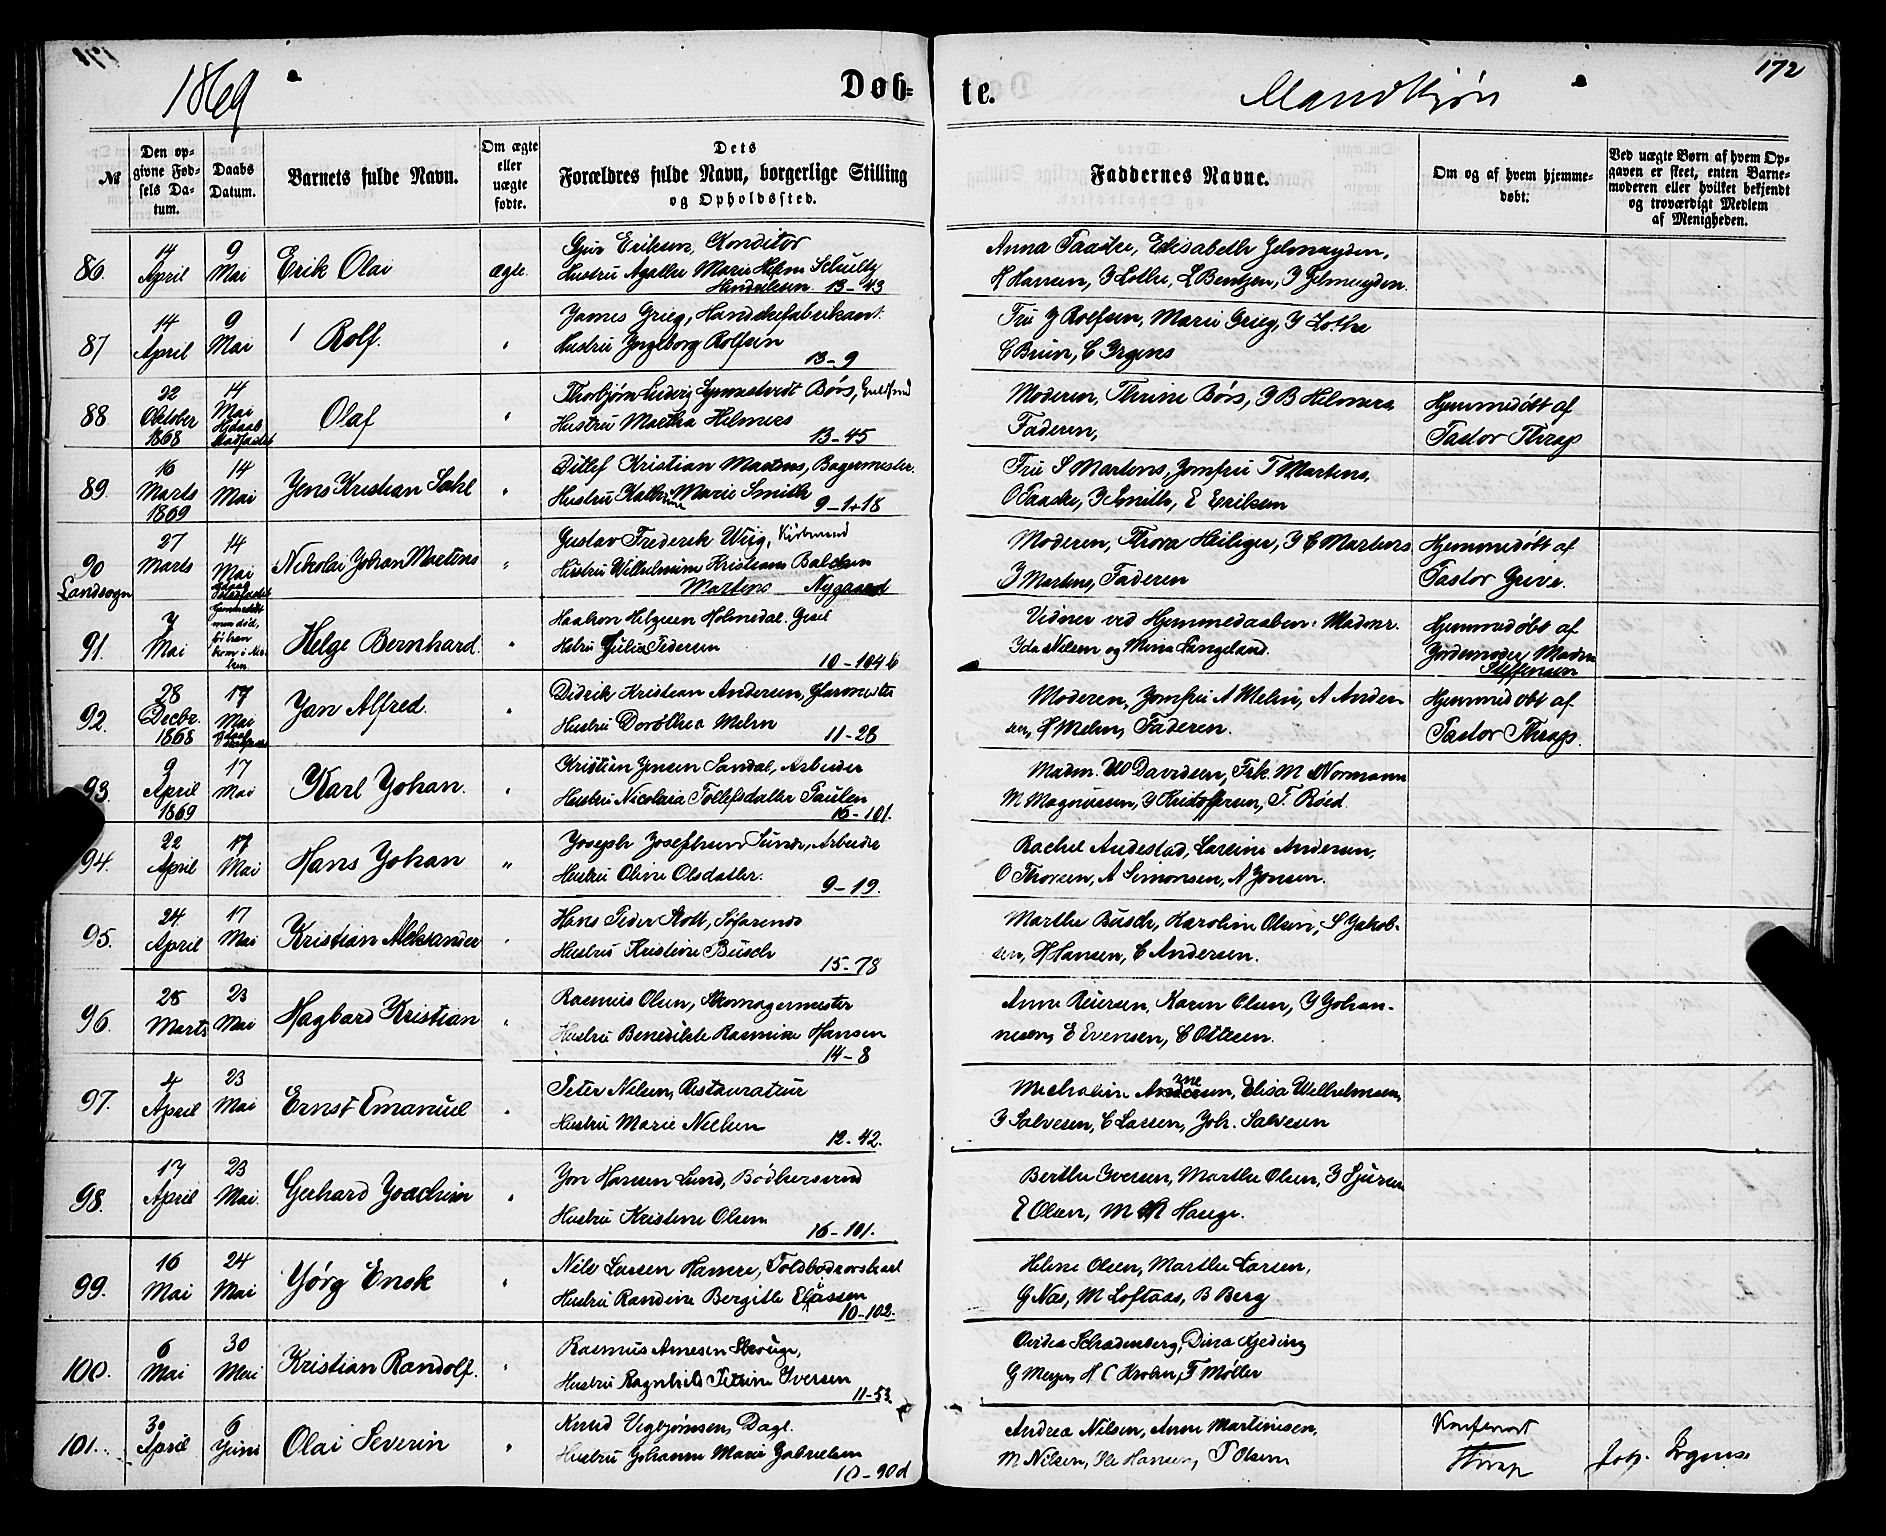 172
1869
Døb=
te.
Mandkjøn
№
Den op=
givne Fød=
sels Da=
tum.
Daabs
Datum.
Barnets fulde Navn.
Om ægte
eller
uægte
fødte.
Dets
Forældres fulde Navn, borgerlige Stilling
og Opholdssted.
Faddernes Navne.
Om og af hvem hjemme=
døbt.
Ved uægte Børn af hvem Op=
gaven er skeet, enten Barne=
moderen eller hvilket bekjendt
og troværdigt Medlem
af Menigheden.
86. 14 April 9 Mai Erik Olai ægte.
Eriksen, Konditor
Hustru Agathe Marie Schultz
Hendriksen. 13-43
Anna Taaske, Elisabeth Jelmuyden,
H Hansen, J Lothe, L Bentzen, J Jelmuyden.
87 14 April 9 Mai Rolf.
James Grieg, Handskefabrikant.
Hustru Ingeborg Rolfsen
13-9
Fru J Rolfsen, Marie Grieg, J Lothe
C Bruun, C Irgens
88 22 Oktober 1868 14 Mai Hjdaab Stadfæstet Olaf
Thorbjørn Ludvig Børs, Guldsmd
Hustru Martha Hilmers
13-45
Moderen, Thrine Børs, J B Hilmers
Faderen,
Hjemmedøbt af
Pastor Thrap
89. 16 Marts 1869 14 Mai Jens Kristian Dahl
Ditlef Kristian Martens, Bagermester.
Hustru Kathrine Marie Smith
9-1+18
Fru S Martens, Jomfru T Martens,
O Taaske, J Smith, E Eriksen
90 Landsogn 27 Marts 14 Mai Hjdaab Stadfæstet Nikolai Johan Martens
Gustav Frederik Wiig, Kjøbmand
Hustru Wilhelmine Kristiane Balchen
Martens Nygaard
Moderen, Thora Heiliger, J C Martens
J Martens, Faderen
Hjemmedøbt af
Pastor Greve.
91. 7 Mai Hjemmedøbt
men død,
før han
kom i Kir-
ken Helge Bernhard.
Haakon Helgesen Holmedal. Gesel
Hstru Julie Pedersen
10-104b
Vidner ved Hjemmedaaben: Madmr.
Ida Nilsen og Mina Langeland.
Hjemmedøbt af
Jordemoder, Madm
Steffensen
92. 28 Decbr. 1868 17 Mai Jan Alfred.
Didrik Kristian Andersen, Glarmester
Hustru Dorothea Mehn
11-28
Moderen, Jomfru A Mehn, A Ander-
sen, H Mehn, Faderen.
Hjemmedøbt af
Pastor Thrap.
93. 9 April 1869 17 Mai Karl Johan.
Kristian Jensen Sandal, Arbeider
Hustru Nicolaia Tollefsdatter Paulsen
16-101.
Madm. W Davidsen, Frk. M Normann
M Magnussen, J Kristoffersen, T. Røed
94. 22 April 17 Mai Hans Johan „
Joseph Josephsen Sunde, Arbeider
Hustru Oline Olsdatter.
9-19.
Rachel Audestad, Lavine Andersen,
O Thorsen, A Simonsen, A Jonsen.
95. 24 April 17 Mai Kristian Aleksander
Hans Peder Stolt, Søfarende
Hustru Kristine Busch
15-78
Marthe Busch, Karoline Olsen, S Jakob-
sen, H Hansen, C Andersen.
96. 28 Marts 23 Mai Hagbard Kristian
Rasmus Olsen, Skomagermester
Hustru Benedikte Rasmine Hansen
14-8
Anne Reiersen, Karen Olsen, J Johan-
nesen, E Evensen, C Ottesen.
97. 4 April 23 Mai Ernst Emanuel
Peter Nilsen, Restauratør
Hustru Marie Nielsen
12-42.
Michaline Arnesen, Elisa Wilhelmsen,
J Salvesen, C Larsen, Joh. Salvesen
98. 17 April 23 Mai. Gerhard Joachim
Jon Hansen Lund, Bødkersvend
Hustru Kristine Olsen
16-101.
Berthe Iversen, Marthe Olsen, J Sjursen
E Olsen, M Hauge.
99. 16 Mai 24 Mai Jørg Ensk
Nils Larsen Hamre, Toldbodrorskarl
Hustru Randine Bergitte Eliassen
10-102.
Helene Olsen, Marthe Larsen,
G Næs, M Loftaas, B Berg
100. 6 Mai 30 Mai Kristian Randolf.
Rasmus Arnesen Skouge,
Hustru Ragnhild Petrine Iversen
11-53
Ovidia Schradenberg, Dina Kjeding
G Meyer, H C Krohn, F Møller
101. 30 April 6 Juni Olai Severin
Knud Vigbjørnsen, Dagl.
Hustru Johanne Marie Gabrielsen
10-90d
Andrea Nilsen, Anne Martinesen,
M Nilsen, Ole Hansen, P Olsen
Konfereret
Thrap
Joh. Irgens.